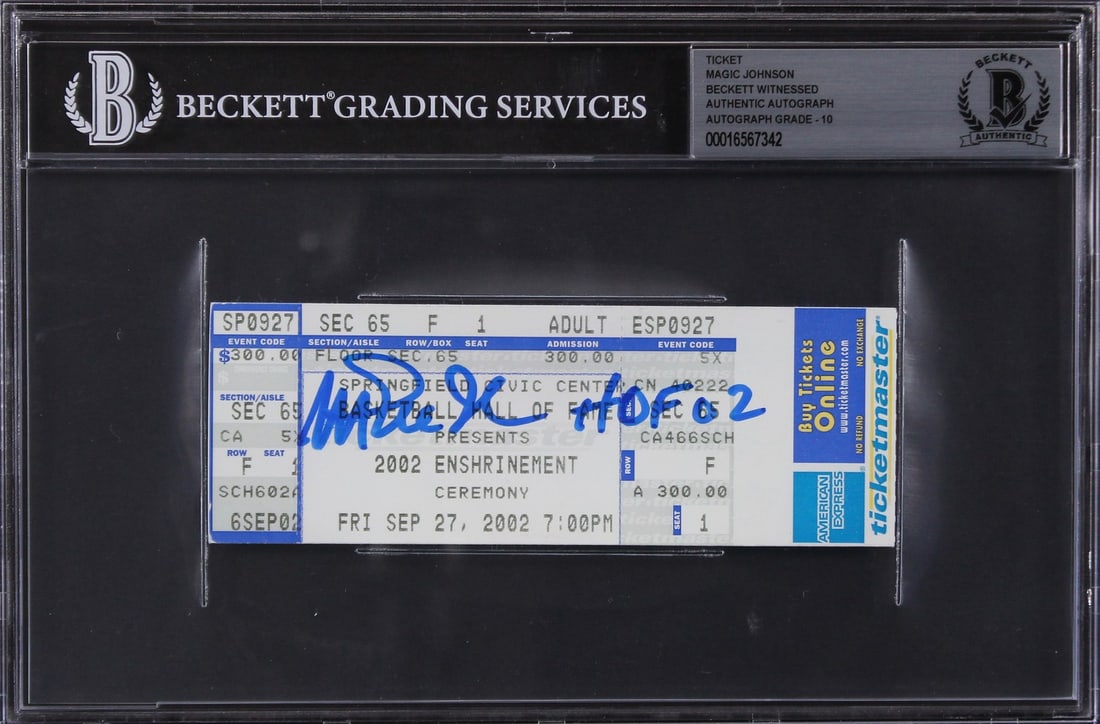 BECKETT® GRADING SERVICES
TICKET
MAGIC JOHNSON
BECKETT WITNESSED
AUTHENTIC AUTOGRAPH
AUTOGRAPH GRADE - 10
00016567342
BECKETT
B
AUTHENTIC
SP0927 SEC 65 F 1 ADULT ESP0927
EVENT CODE SECTION/AISLE ROW/BOX SEAT ADMISSION EVENT CODE
$300.00 FLOOR SEC.65 300.00 5X
SPRINGFIELD CIVIC CENTER CN 40222
SECTION/AISLE
SEC 65 BASKETBALL HALL OF FAME SEC 65
HOF 02
CA 5X PRESENTS CA466SCH
ROW SEAT
F 1 2002 ENSHRINEMENT ROW F
SCH602A CEREMONY A 300.00
6SEP02 FRI SEP 27, 2002 7:00PM SEAT 1
Buy Tickets
Online
www.ticketmaster.com
NO REFUND NO EXCHANGE
AMERICAN
EXPRESS
ticketmaster®